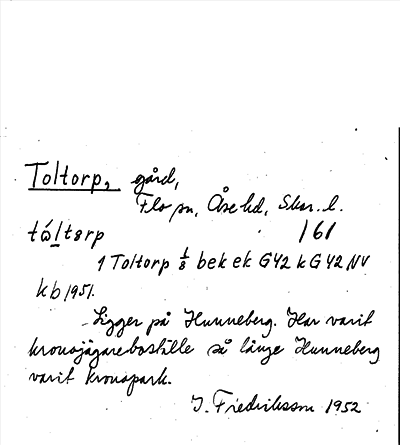 Toltorp, gård,
Flo sn, Åse hd, Skar. l.
tώltσrp 161
1 Toltorp 1/8 bek ek G42 k G42 NV
kb 1951.
Ligger på Hunneberg. Har varit
kronojägareboställe så länge Hunneberg
varit kronopark.
J. Fredriksson 1952